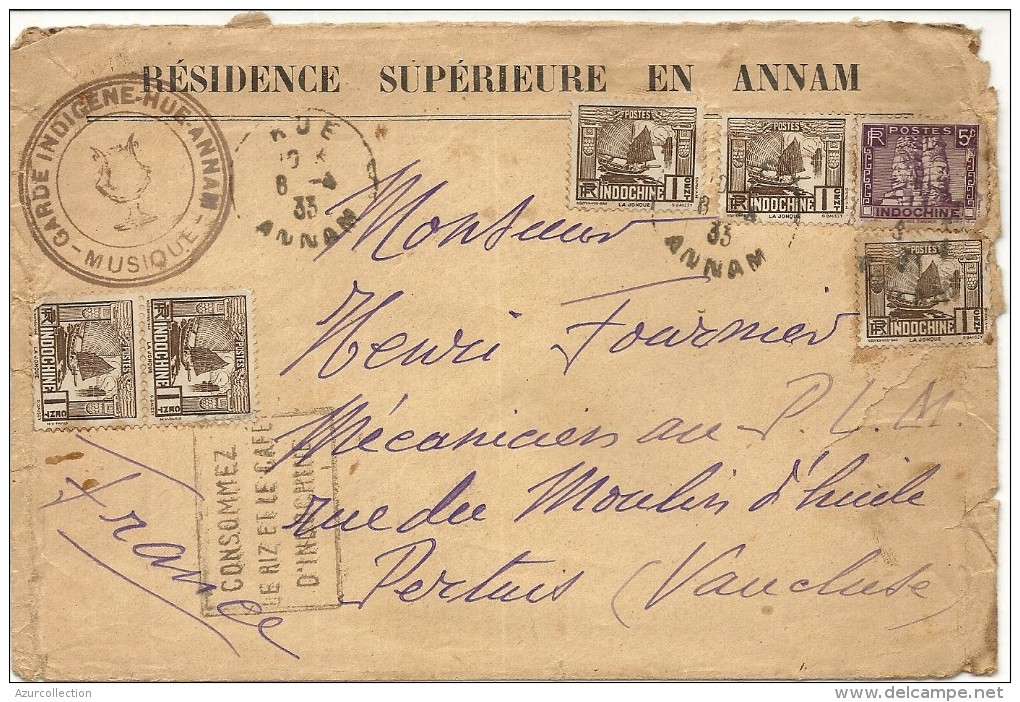 RÉSIDENCE SUPÉRIEURE EN ANNAM
GARDE INDIGÈNE-HUE-ANNAM
- MUSIQUE -
HUE
8 -4
33
ANNAM
POSTES
RF INDOCHINE 1
LA JONQUE
POSTES
RF INDOCHINE 1
LA JONQUE
RF POSTES 5c
INDOCHINE
8
33
ANNAM
POSTES
RF INDOCHINE 1
LA JONQUE
POSTES
RF INDOCHINE 1
LA JONQUE
POSTES
RF INDOCHINE 1
LA JONQUE
Monsieur
Henri Fournier
Mécanicien au P.L.M.
rue du Moulin d'huile
Pertuis (Vaucluse)
France
CONSOMMEZ
LE RIZ ET LE CAFE
D'INDOCHINE
Azurcollection
delcampe.net